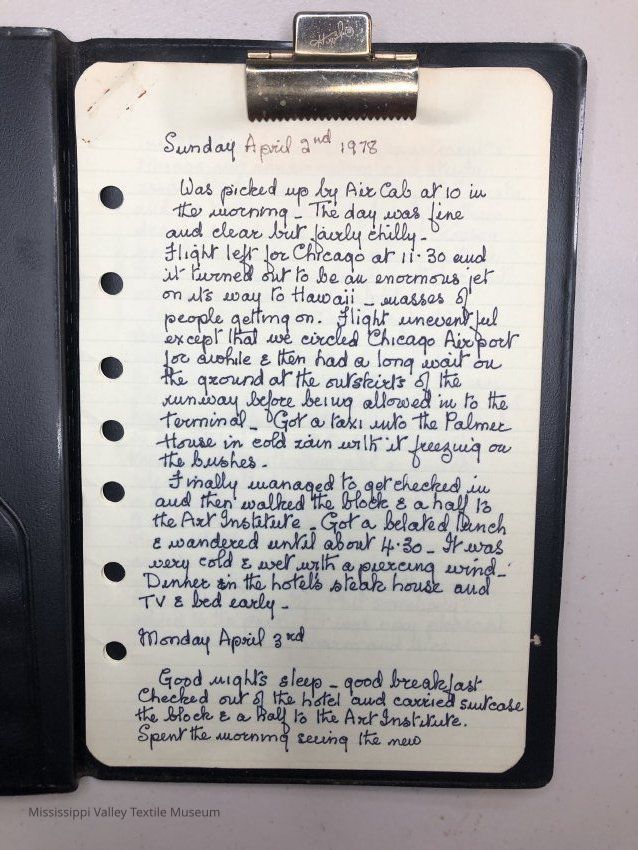 Sunday April 2nd 1978
Was picked up by Air Cab at 10 in
the morning _ The day was fine
and clear but fairly chilly _
Flight left for Chicago at 11·30 and
it turned out to be an enormous jet
on it's way to Hawaii _ masses of
people getting on. Flight uneventful
except that we circled Chicago Airport
for awhile & then had a long wait on
the ground at the outskirts of the
runway before being allowed in to the
terminal _ Got a taxi into the Palmer
House in cold rain with it freezing on
the bushes.
Finally managed to get checked in
and then walked the block & a half to
the Art Institute _ Got a belated lunch
& wandered until about 4·30 _ It was
very cold & wet with a piercing wind _
Dinner in the hotel's steak house and
TV & bed early _
Monday April 3rd
Good night's sleep _ good breakfast
Checked out of the hotel and carried suitcase
the block & a half to the Art Institute.
Spent the morning seeing the new
Mississippi Valley Textile Museum